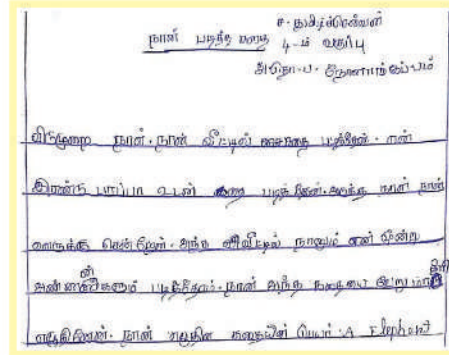 ச. தமிழ்ச்செல்வன்
நான் படித்த கதை 4-ம் வகுப்பு
விடுமுறை நாள். நான் வீட்டில் கதை படித்தேன். என்
இரண்டு பாப்பா உடன் கதை படித்தேன். அடுத்த நாள் நான்
ஊருக்கு சென்றேன். அந்த வீட்டில் நானும் என் மூன்று
அண்ணன்களும் படித்தோம். நான் அந்த கதையை வேறு மாதிரி
எழுதினேன். நான் எழுதின கதையின் பெயர் : A Elephant